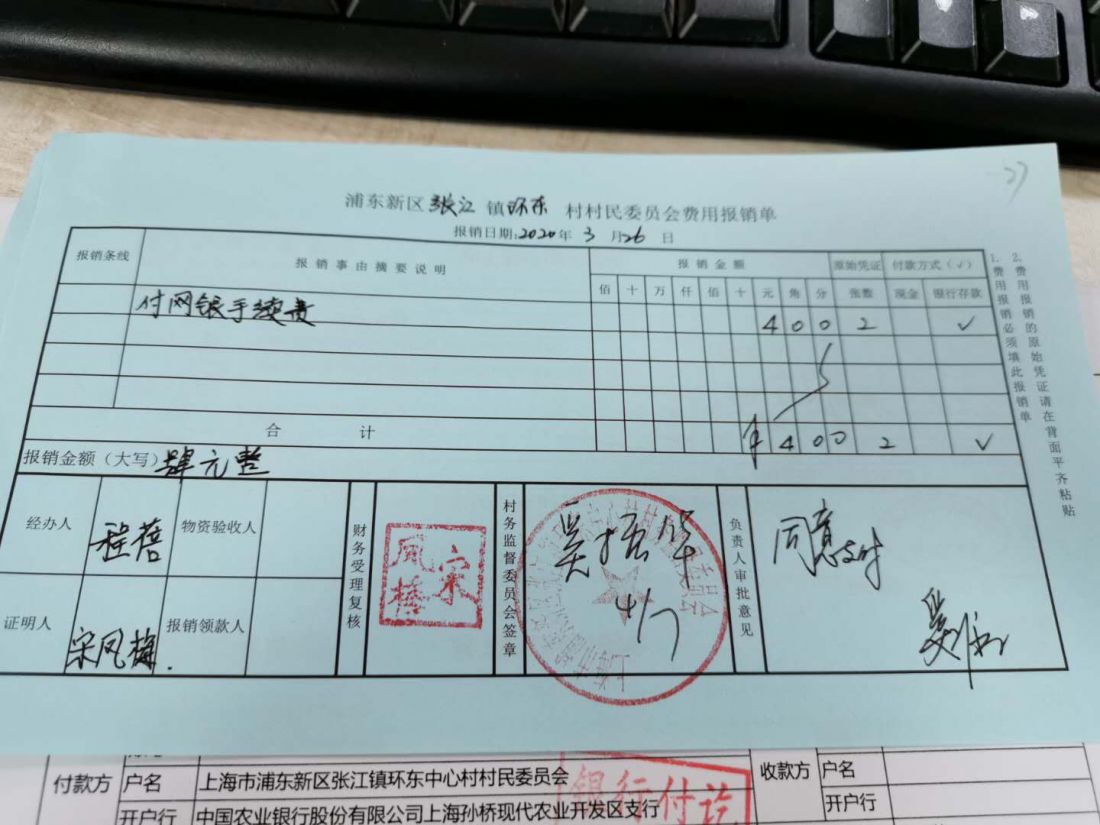 27
浦东新区张江镇环东村村民委员会费用报销单
报销日期:2020年3月26日
报销条线 报销事由摘要说明 报销金额 原始凭证 付款方式(√)
佰 十 万 仟 佰 十 元 角 分 张数 现金 银行存款
付网银手续费 4 0 0 2 √
合计 ¥ 4 0 0 2 √
报销金额(大写) 肆元整
经办人 程蓓 物资验收人
证明人 宋凤梅. 报销领款人
财务受理复核
宋凤梅
村务监督委员会签章
吴振华
4/7
负责人审批意见
同意支付
1.费用报销必须填此报销单
2.费用报销的原始凭证请在背面平齐粘贴
付款方 户名 上海市浦东新区张江镇环东中心村村民委员会 收款方 户名
开户行 中国农业银行股份有限公司上海孙桥现代农业开发区支行 开户行
银行付讫